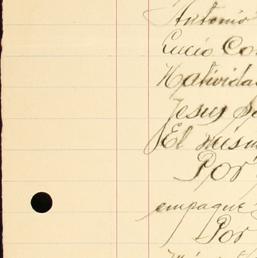 Antonio
Lucio Co
Nativida
Jesus S
El mism
Por
empaque
Por